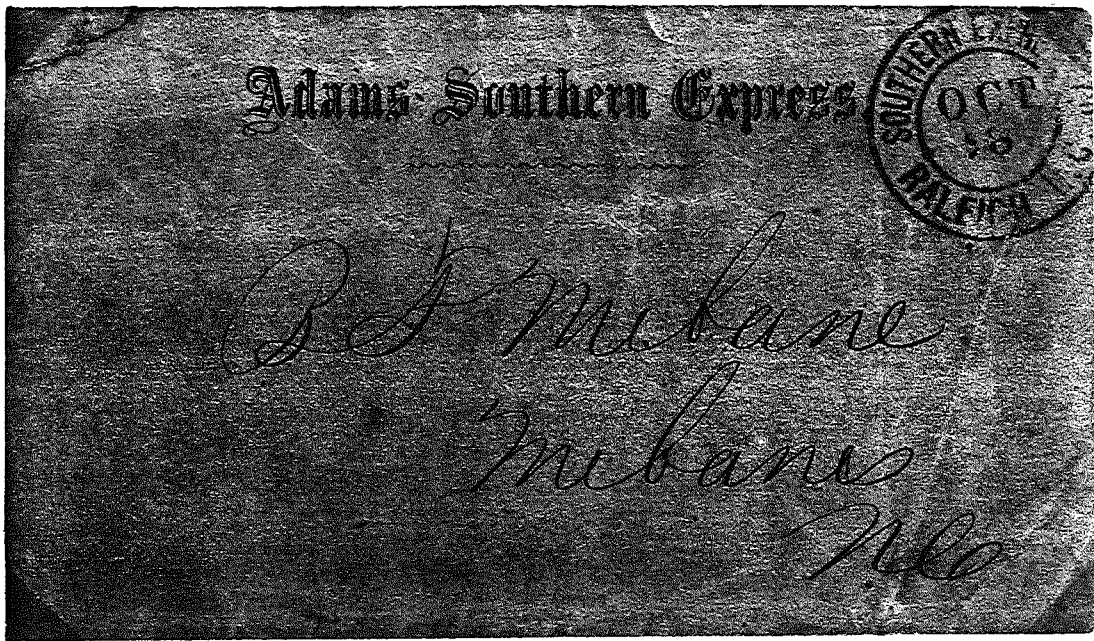 Adams Southern Express
SOUTHERN
OCT
RALEIGH
B F Mebane
Mebane
NC